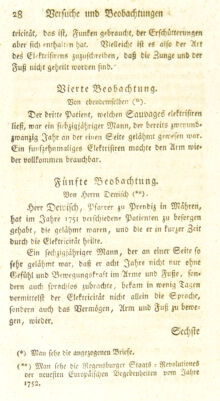 28 Versuche und Beobachtungen
tricität, das ist, Funken gebraucht, der Erschütterungen
aber sich enthalten hat. Vielleicht ist es also der Art
des Elektrisirens zuzuschreiben, daß die Zunge und der
Fuß nicht geheilt worden sind.
Vierte Beobachtung.
Von ebendemselben (*).
Der dritte Patient, welchen Sauvages elektrisiren
ließ, war ein siebzigjähriger Mann, der bereits zweyund-
zwanzig Jahr an der einen Seite gelähmt gewesen war.
Ein fünfzehnmaliges Elektrisiren machte den Arm wie-
der vollkommen brauchbar.
Fünfte Beobachtung.
Von Herrn Dewisch (**).
Herr Dewisch, Pfarrer zu Prendiz in Mähren,
hat im Jahr 1751 verschiedene Patienten zu besorgen
gehabt, die gelähmt waren, und die er in kurzer Zeit
durch die Elektricität heilte.
Ein sechzigjähriger Mann, der an einer Seite so
sehr gelähmt war, daß er acht Jahr nicht nur ohne
Gefühl und Bewegungskraft im Arme und Fuße, son-
dern auch sprachlos zubrachte, bekam in wenig Tagen
vermittelst der Elektricität nicht allein die Sprache,
sondern auch das Vermögen, Arm und Fuß zu bewe-
gen, wieder.
Sechste
(*) Man sehe die angezogenen Briefe.
(**) Man sehe die Regensburger Staats-Revolutiones
der neuesten Europäischen Begebenheiten vom Jahre
1752.